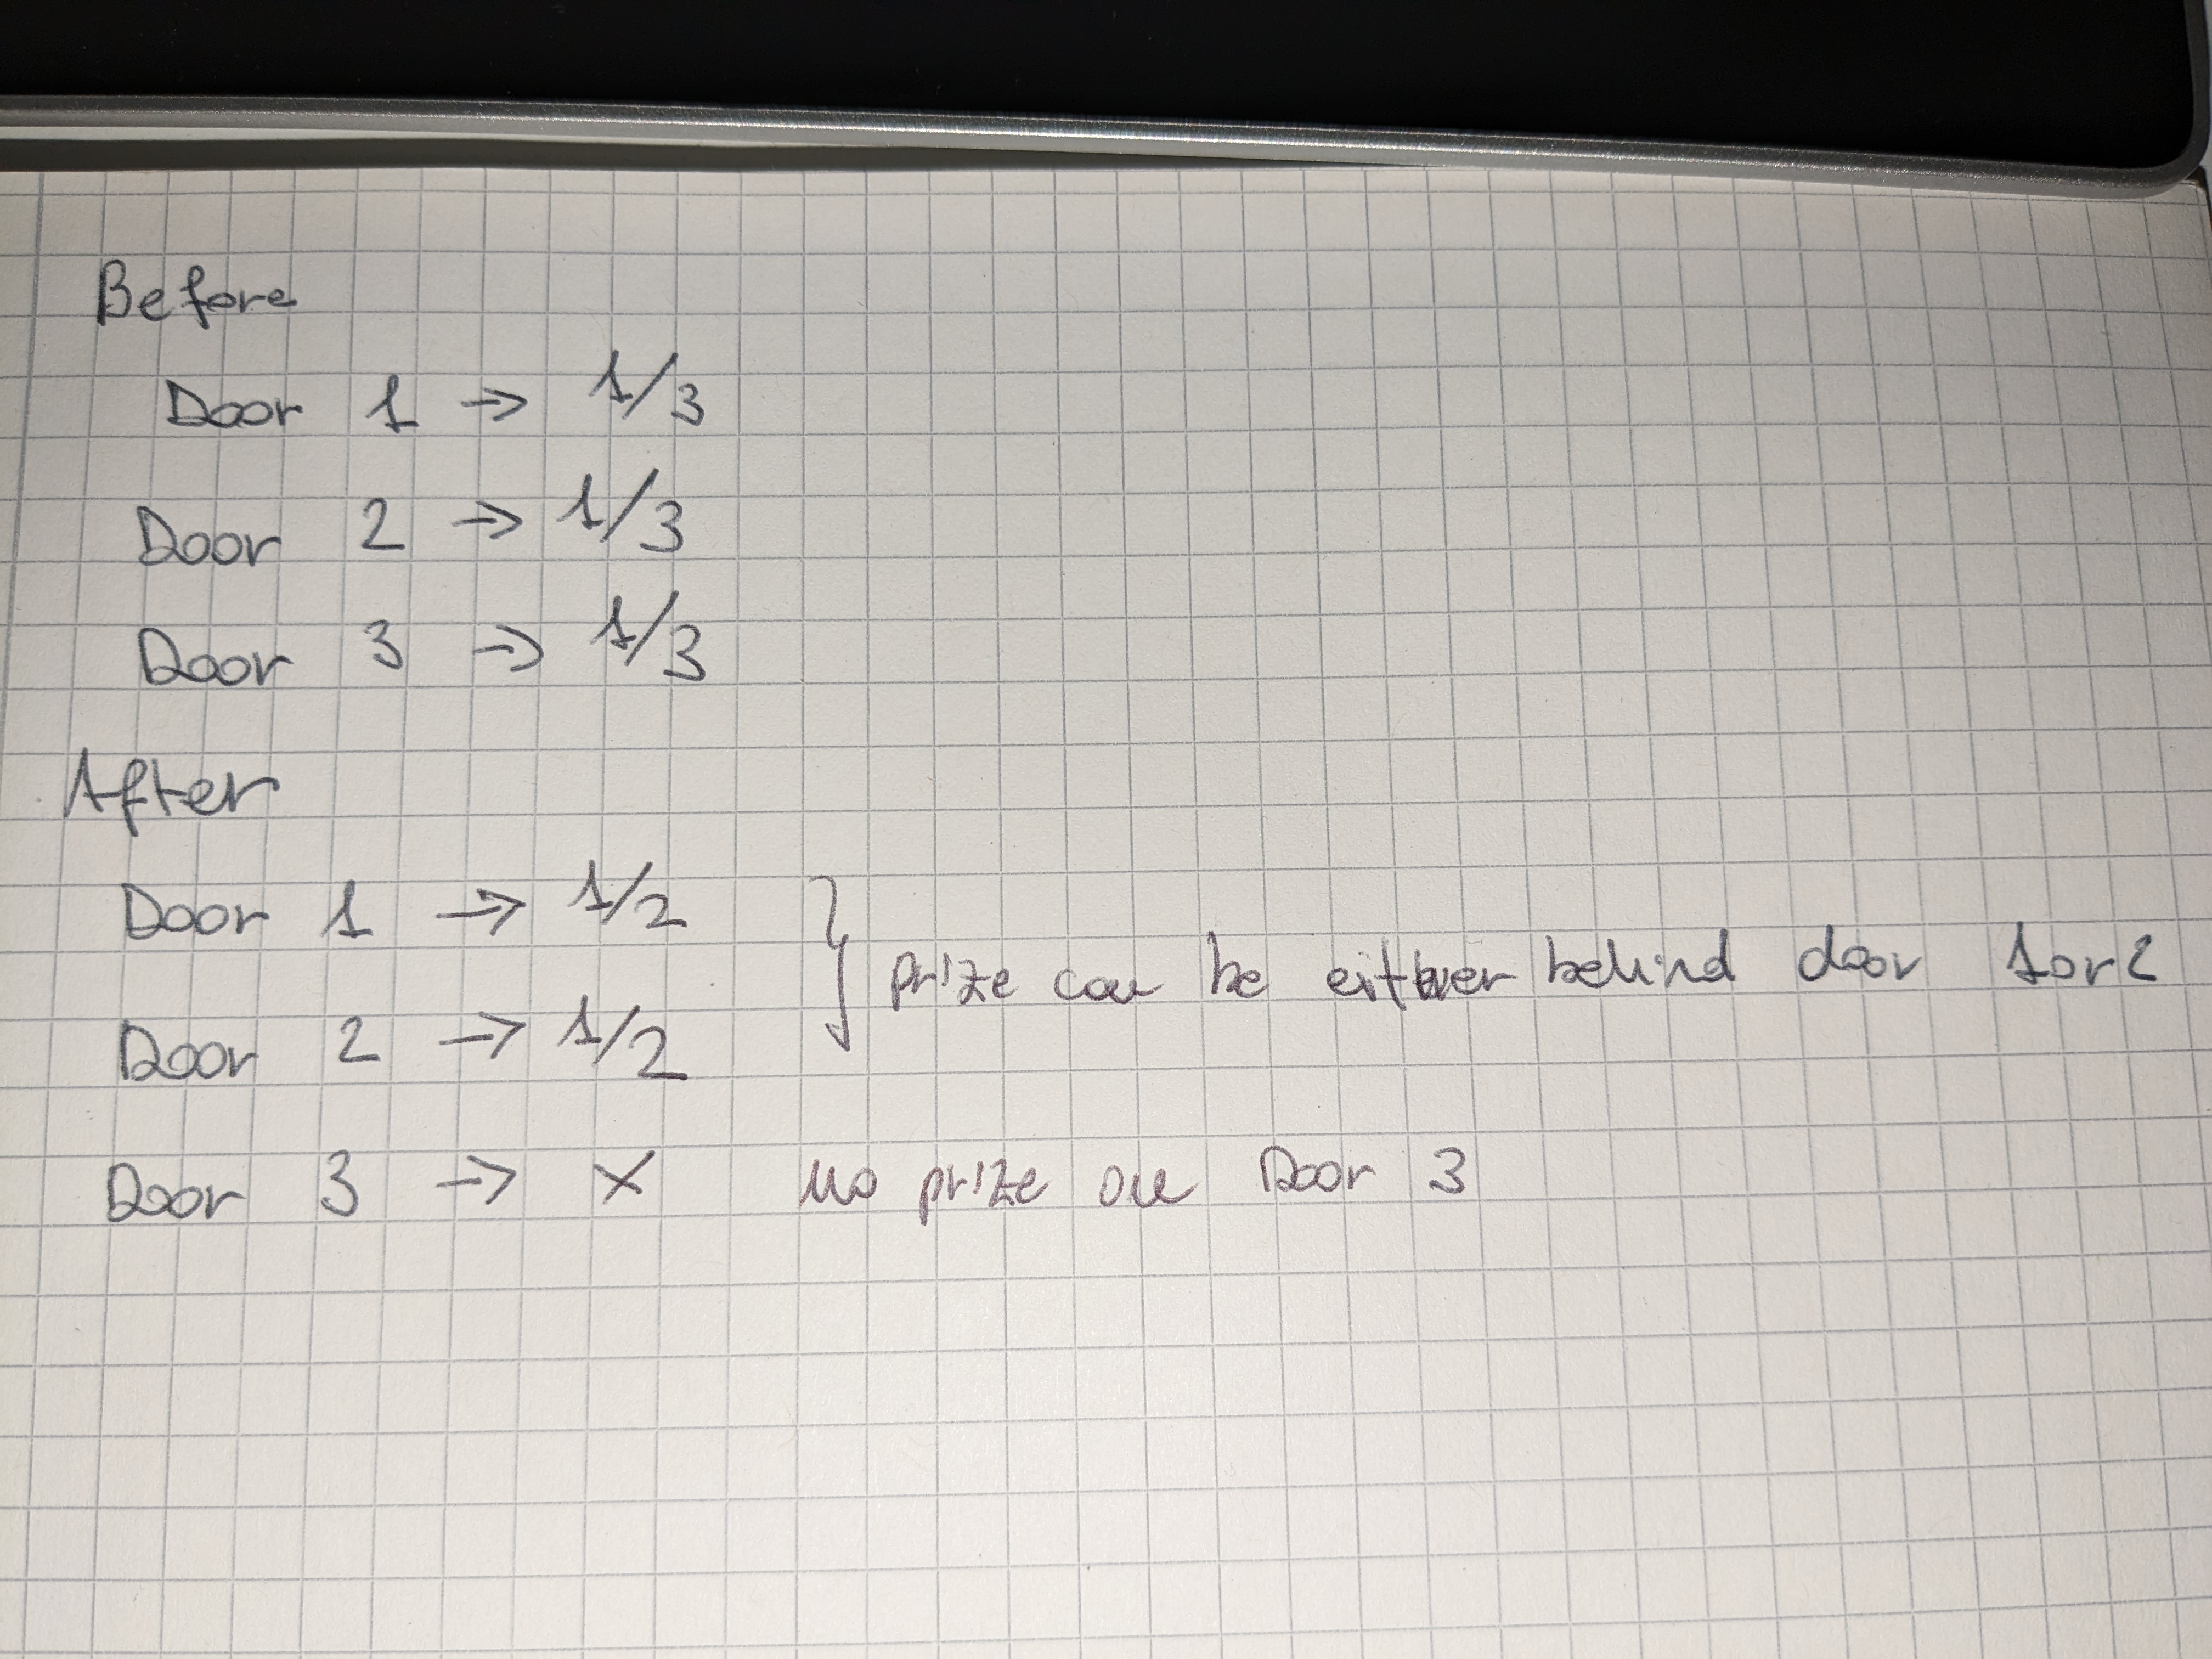 Before
Door 1 → 1/3
Door 2 → 1/3
Door 3 → 1/3
After
Door 1 → 1/2
} prize can be either behind door 1 or 2
Door 2 → 1/2
Door 3 → X no prize on Door 3